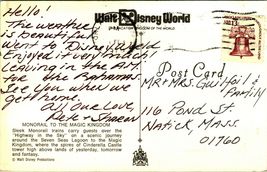 Hello!
The weather
is beautiful
Went to Disney World
Enjoyed it very much
Leaving in the A.M.
for the Bahamas.
See you when we
get home.
All Our Love,
Pete & Sharon
Walt Disney World
VACATION KINGDOM OF THE WORLD
Post Card
Mr & Mrs. Guilfoil &
Family
116 Pond St
Natick, MASS.
01760
MONORAIL TO THE MAGIC KINGDOM
Sleek Monorail trains carry guests over the
"Highway in the Sky" on a scenic journey
around the Seven Seas Lagoon to the Magic
Kingdom, where the spires of Cinderella Castle
tower high above lands of yesterday, tomorrow
and fantasy.
© Walt Disney Productions